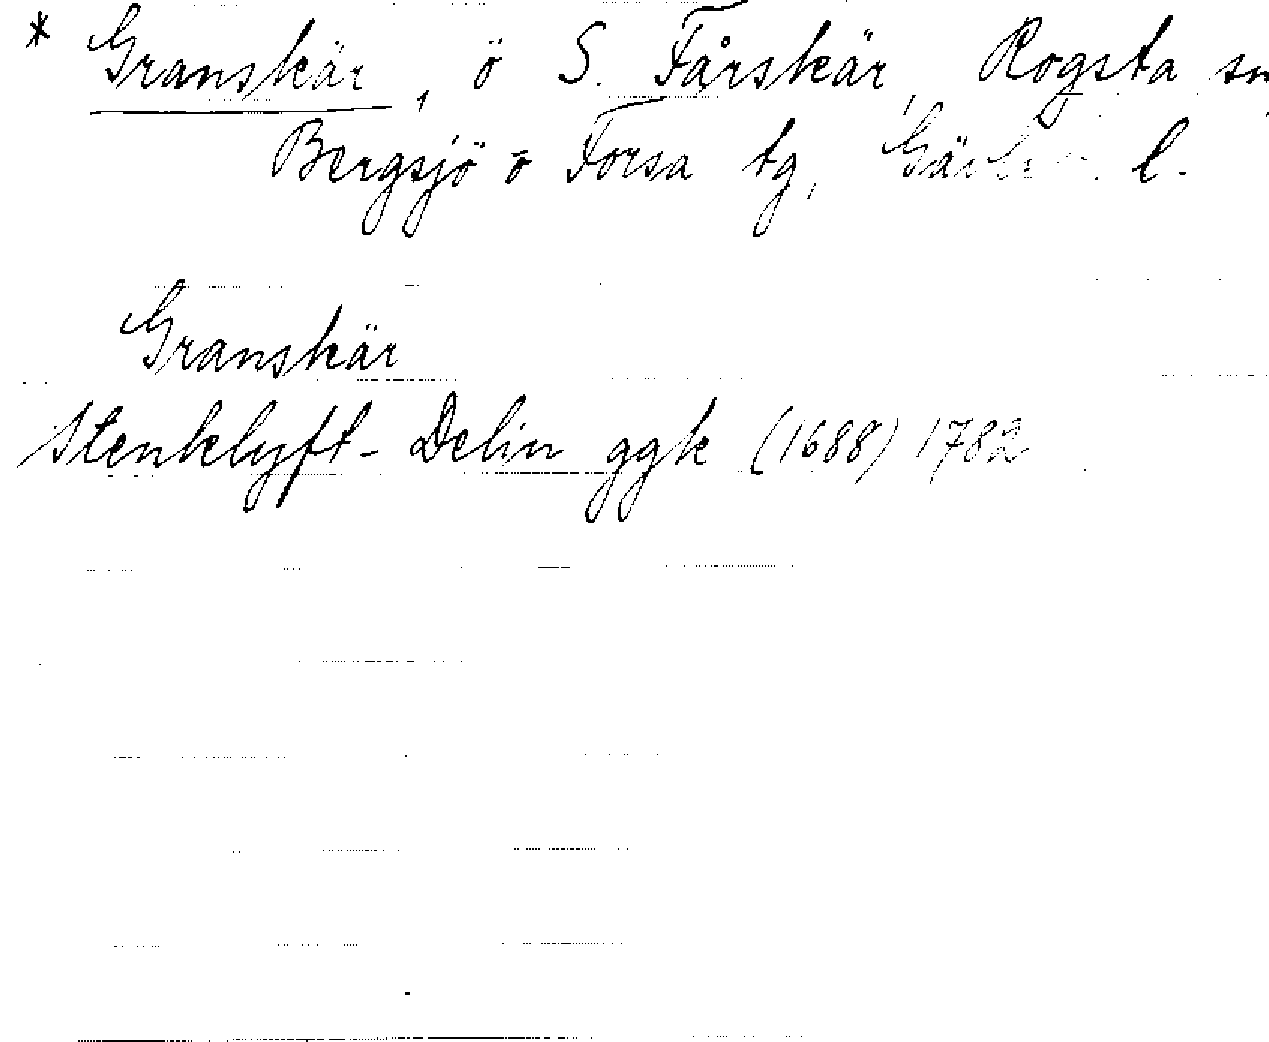 * Granskär, ö S. Fårskär, Rogsta sn
Bergsjö o Forsa tg, l.
Granskär
Stenklyft- Delin ggk (1688) 1782